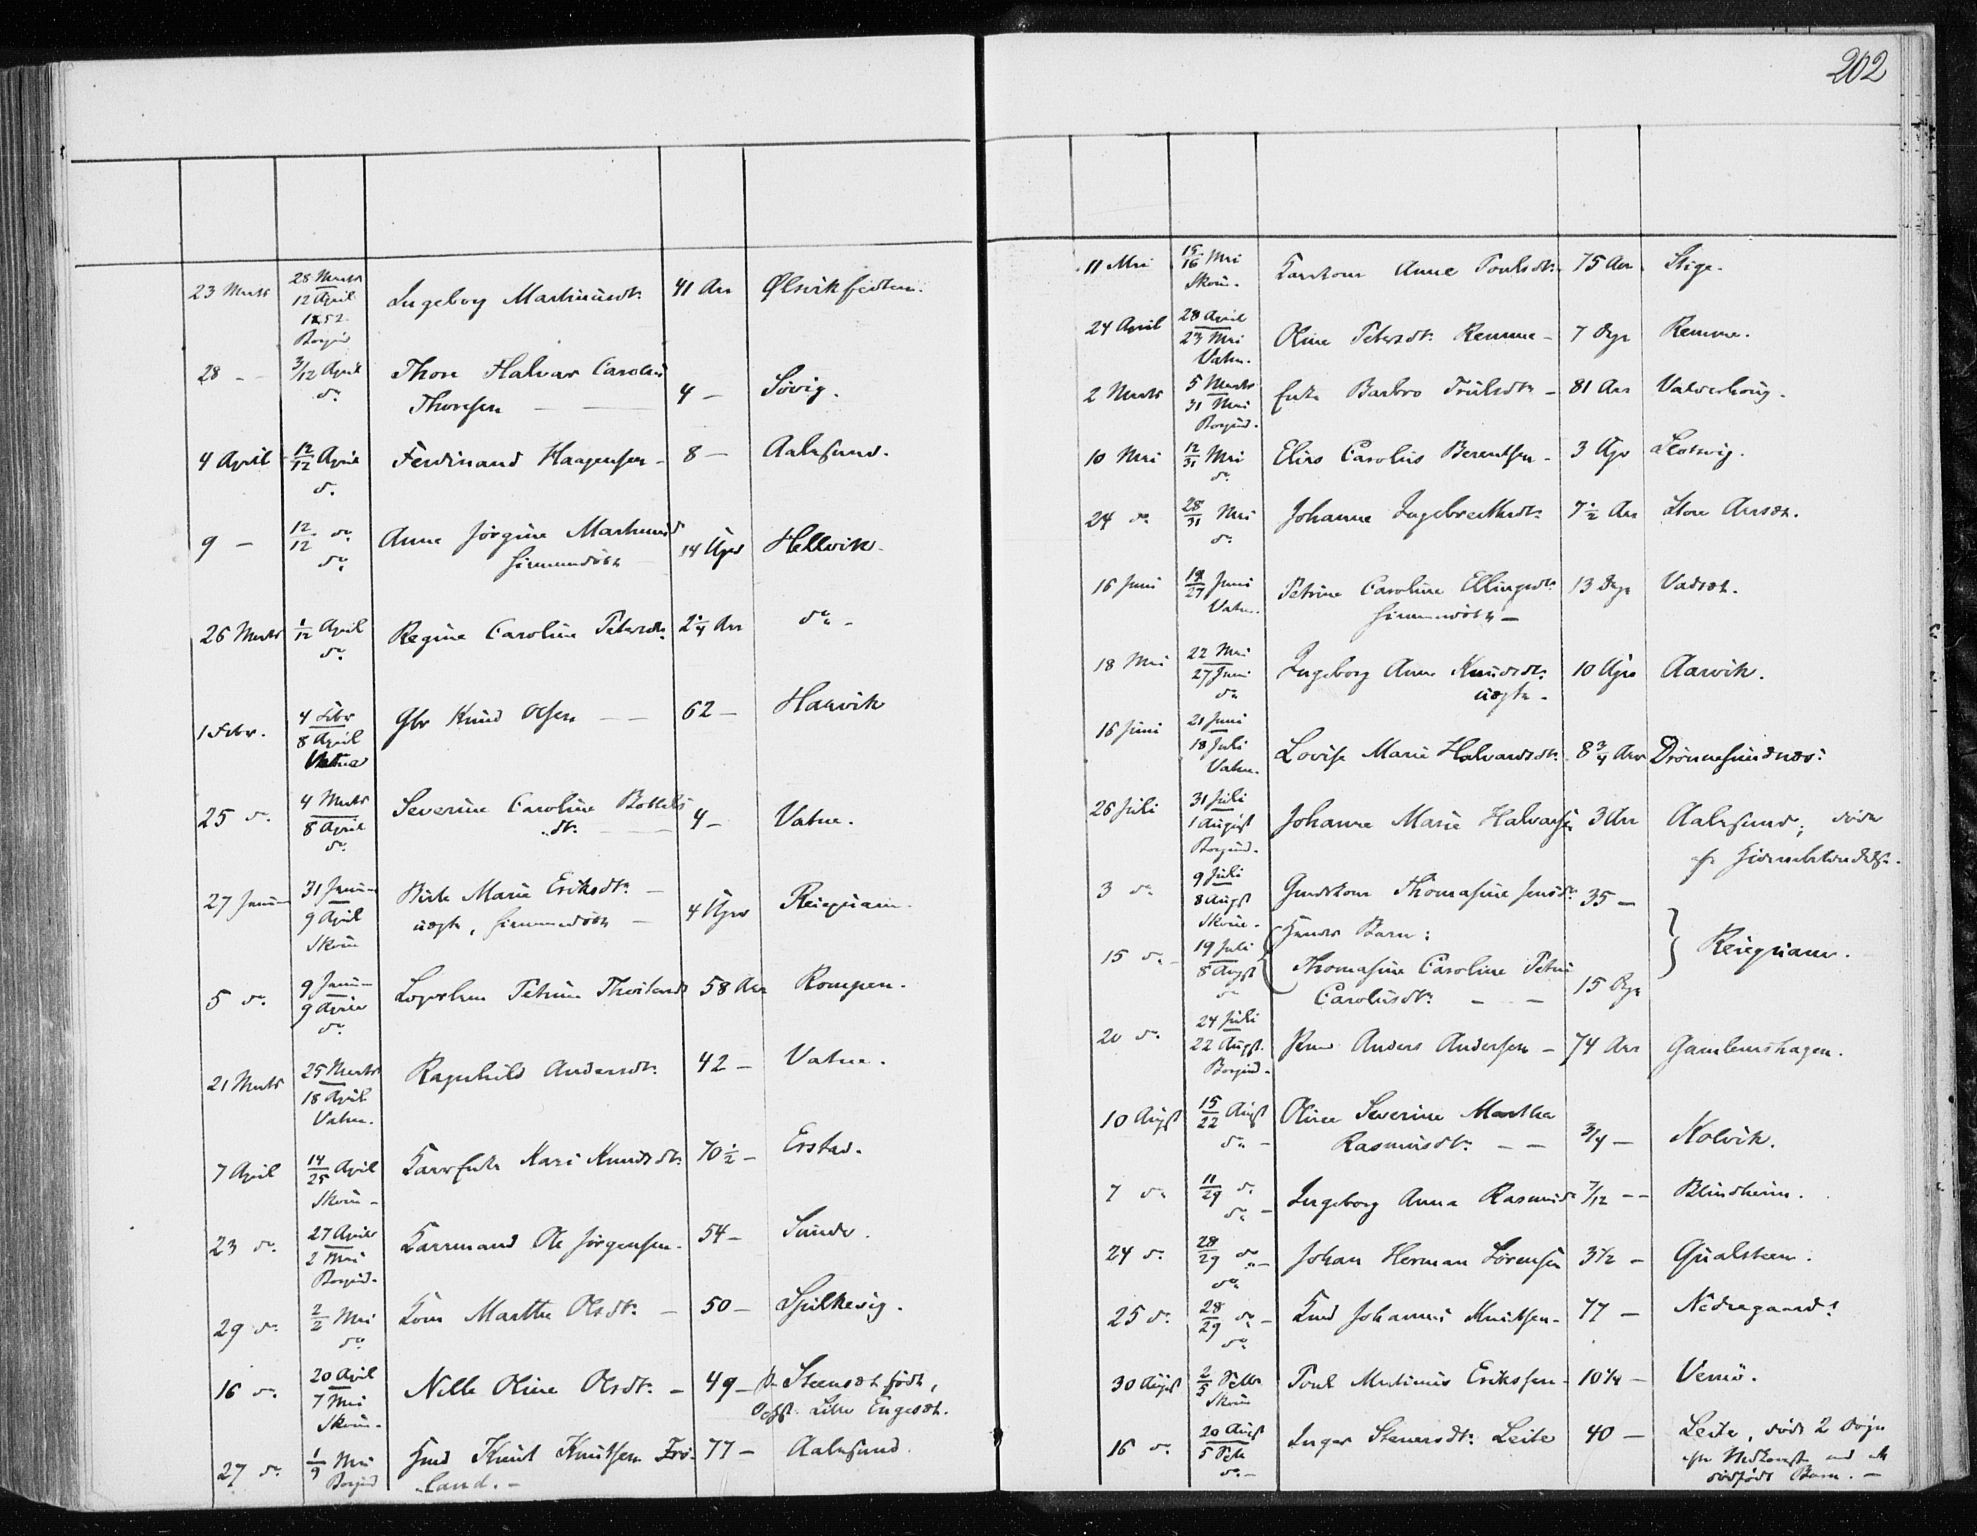 202
23 Marts
28 Marts
12 April
1852
Borgund
Ingeborg Martinusdtr
41 Aar
Ølsvikfedten
28 -
3/12 April
do
Thore Halvar Carolus
Thoresen
4 -
Søvig.
4 April
12/12 April
do
Ferdinand Haagensen
8 -
Aalesund.
9 -
12/12 do
do
Anne Jørgine Martinus
hjemmedøbt
14 Uger
Hellevik
26 Marts
1/12 April
do
Regine Caroline Petersdtr
2 1/4 Aar
do -
1 Febr.
4 Febr
8 April
Vatne
Gbr Knud Olsen
62 -
25 do
4 Marts
8 April
do
Severine Caroline
dtr
4 -
Vatne.
27 Januar
31 Januar
9 April
Marie Eriksdtr -
uægte, hjemmedøbt
4 Uger
5 do
9 Januar
9 April
do
58 Aar
Rompen.
21 Marts
25 Marts
18 April
Vatne.
Ragnhild Andersdtr
42 -
Vatne.
7 April
14/25 April
Kari Knudsdtr
70 1/2 -
Erstad.
23 do
27 April
2 Mai
Borgund.
Karrmand Ole Jørgensen.
54 -
Sunde.
29 do
2/2 Mai
do
Kone Marthe Olsdtr
50 -
Spilkevig.
16 do
20 April
7 Mai
Nille Oline Olsdtr -
49 -
født,
Lille Engeset.
27 do
1/9 Mai
Borgund
Knut Knutsen Frø-
land. -
77 -
Aalesund
11 Mai
15/16 Mai
Anne Poulsdtr
75 Aar
Stige.
24 April
28 April
23 Mai
Vatne.
Oline Petersdtr Remme -
7 Dage
Remme.
2 Marts
5 Marts
31 Mai
Borgund.
Enke Barbro Trulsdtr -
81 Aar
Valderhoug.
10 Mai
12/31 Mai
do
Elias Carolus Berentsen -
3 Uger
Slotsvig.
24 do
28/31 Mai
do
Johanne Ingebrethsdtr
7 1/2 Aar
Store Aarset.
16 Juni
19/27 Juni
Vatne.
Petrine Caroline Ellingsdtr
hjemmedøbt -
13 Dage
Vadset.
18 Mai
22 Mai
27 Juni
do
Ingeborg Anne Knudsdtr
uægte.
10 Uger
Aarvik.
16 Juni
21 Juni
18 Juli
Vatne.
Lovise Marie Halvardsdtr
8 3/4 Aar
Drønnesundnæs:
26 Juli
31 Juli
1 August
Borgund.
Johanne Marie Halvorsen
3 Aar
Aalesund; døde
af Hjernebetændelse.
3 do
9 Juli
8 Augst
Thomasine Jensdtr
35 -
15 do -
19 Juli
8 Augst
do
Hendes Barn:
Thomasine Caroline Petrine
Carolusdtr - -
15 Dage
20 do
24 Juli
22 Augst.
Borgund.
Anders Andersen -
74 Aar
Gamlemshagen.
10 Augst
15/22 Augst
do -
Oline Severine Martha
Rasmusdtr - -
3/4 -
Kolvik.
7 do
11/29 do
do -
Ingeborg Anna Rasmusdtr
7/12 -
Blindheim.
24 do
28/29 do
do
Johan Herman Sørensen
3 1/2 -
Gualsteen.
25 do
28/29 do -
do
Johannes Knutsen -
77 -
Nedregaard.
30 August
2/5 Septb
Poul Martinus Eriksen -
10 1/4 -
16 do
20 Augst
5 Septb
do -
Inger Steenersdtr Leite
40 -
Leite, døde 2 Døgn
efter Nedkomst med et
dødfødt Barn. -